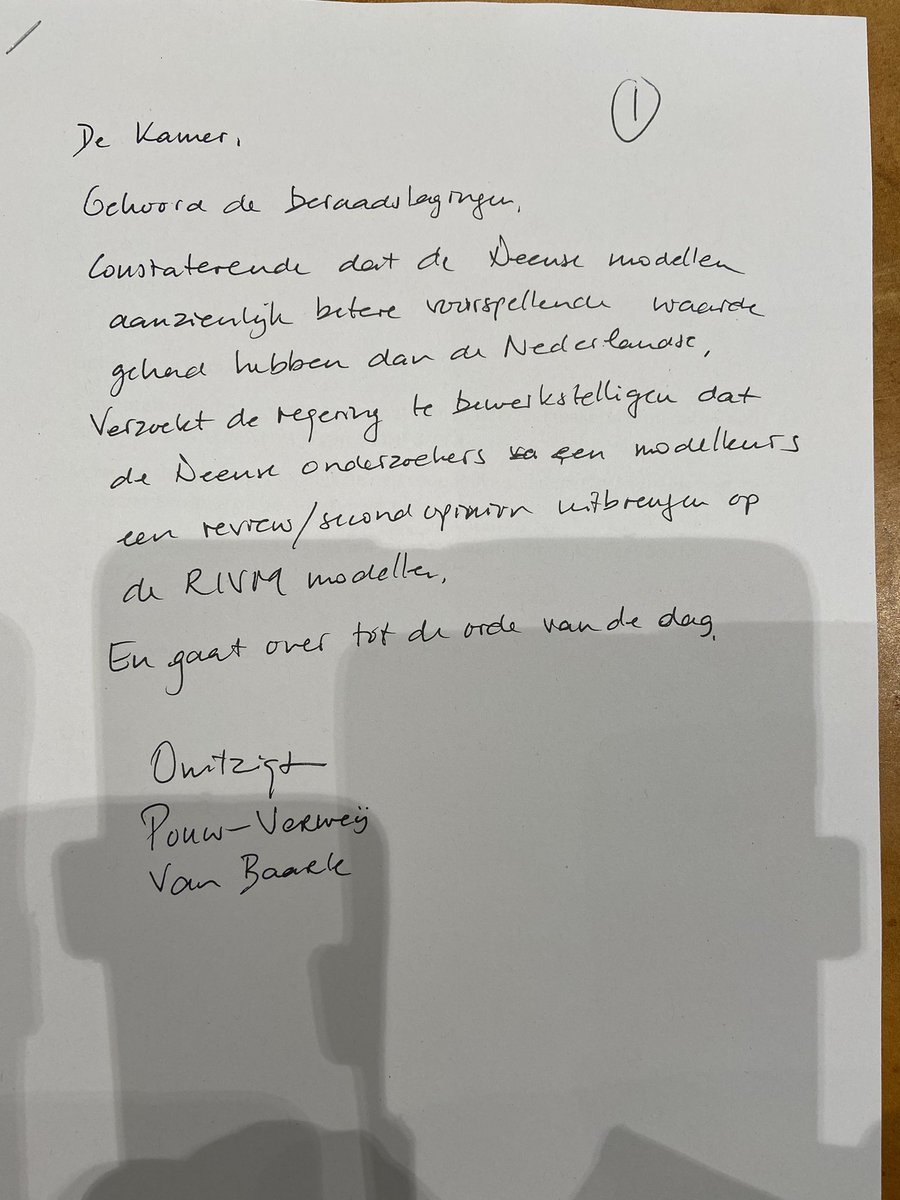 ①
De Kamer,
Gehoord de beraadslagingen,
Constaterende dat de Deense modellen
aanzienlijk betere voorspellende waarde
gehad hebben dan de Nederlandse,
Verzoekt de regering te bewerkstelligen dat
de Deense onderzoekers een modelleurs
een review/second opinion uitbrengen op
de RIVM modellen,
En gaat over tot de orde van de dag.
Omtzigt
Pouw-Verweij
Van Baarle